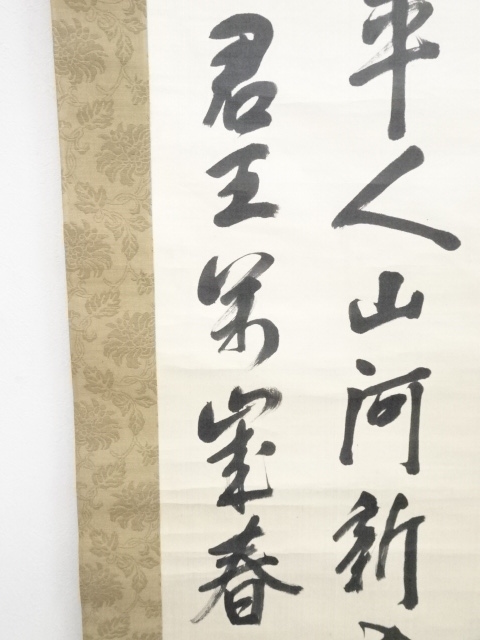 平人山河新
君王萬歲春